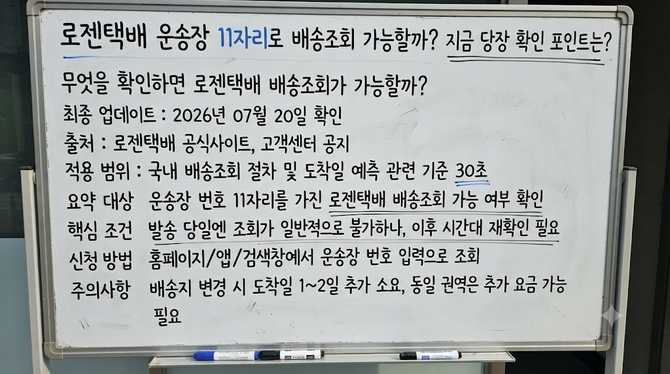 로젠택배 운송장 11자리로 배송조회 가능할까? 지금 당장 확인 포인트는?
무엇을 확인하면 로젠택배 배송조회가 가능할까?
최종 업데이트 : 2026년 07월 20일 확인
출처 : 로젠택배 공식사이트, 고객센터 공지
적용 범위 : 국내 배송조회 절차 및 도착일 예측 관련 기준 30초
요약 대상 운송장 번호 11자리를 가진 로젠택배 배송조회 가능 여부 확인
핵심 조건 발송 당일엔 조회가 일반적으로 불가하나, 이후 시간대 재확인 필요
신청 방법 홈페이지/앱/검색창에서 운송장 번호 입력으로 조회
주의사항 배송지 변경 시 도착일 1~2일 추가 소요, 동일 권역은 추가 요금 가능
필요